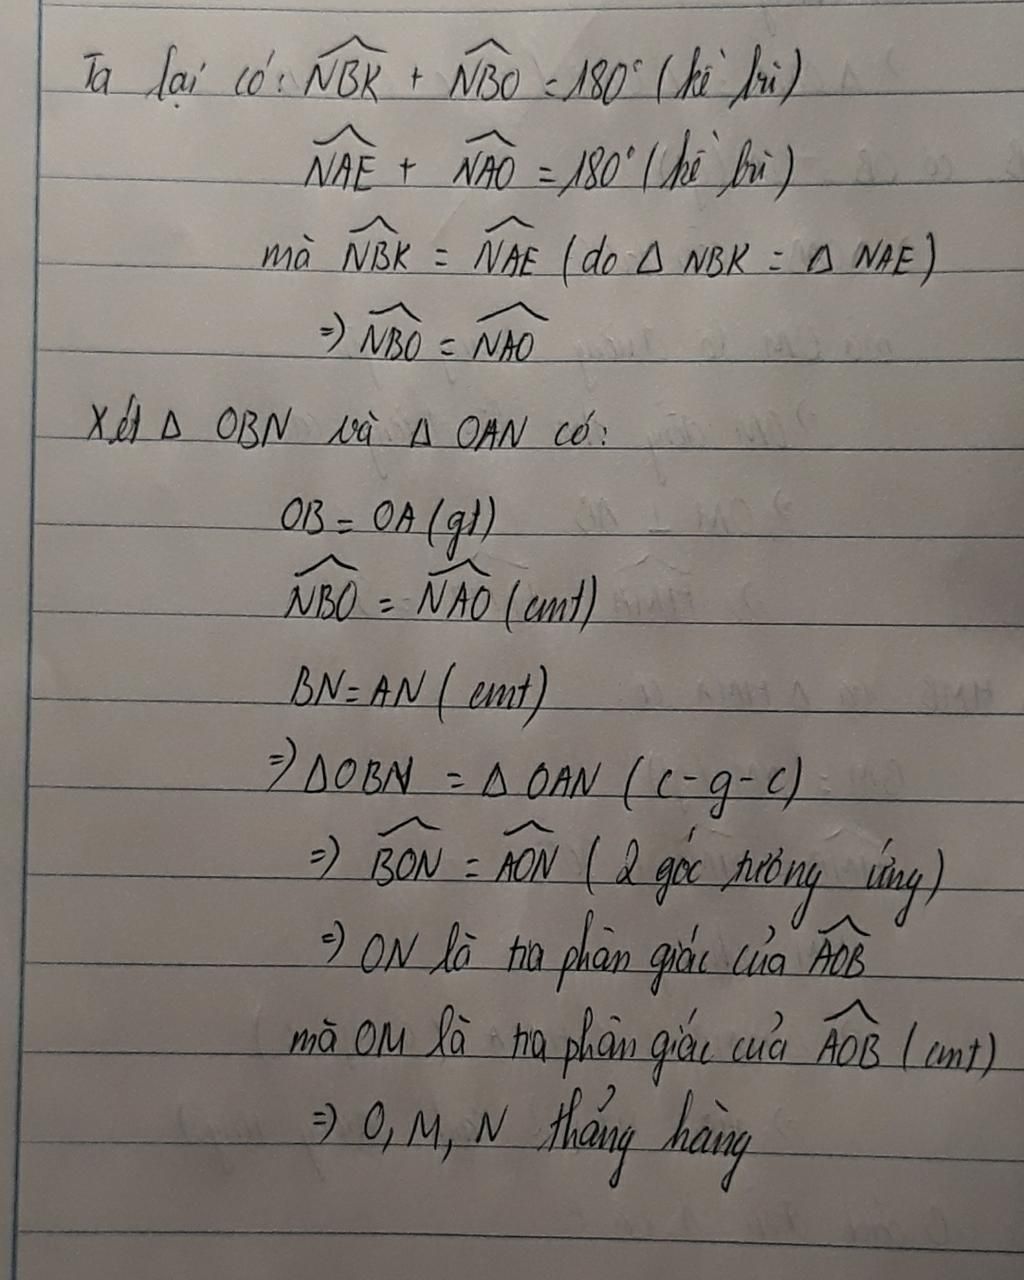 Ta lại có: NBK + NBO = 180° (kề bù)
NAE + NAO = 180° (kề bù)
mà NBK = NAE (do Δ NBK = Δ NAE)
=> NBO = NAO
Xét Δ OBN và Δ OAN có:
OB = OA (gt)
NBO = NAO (cmt)
BN = AN (cmt)
=> ΔOBN = Δ OAN (c-g-c)
=> BON = AON (2 góc tương ứng)
=> ON là tia phân giác của AOB
mà OM là tia phân giác của AOB (cmt)
=> O, M, N thẳng hàng